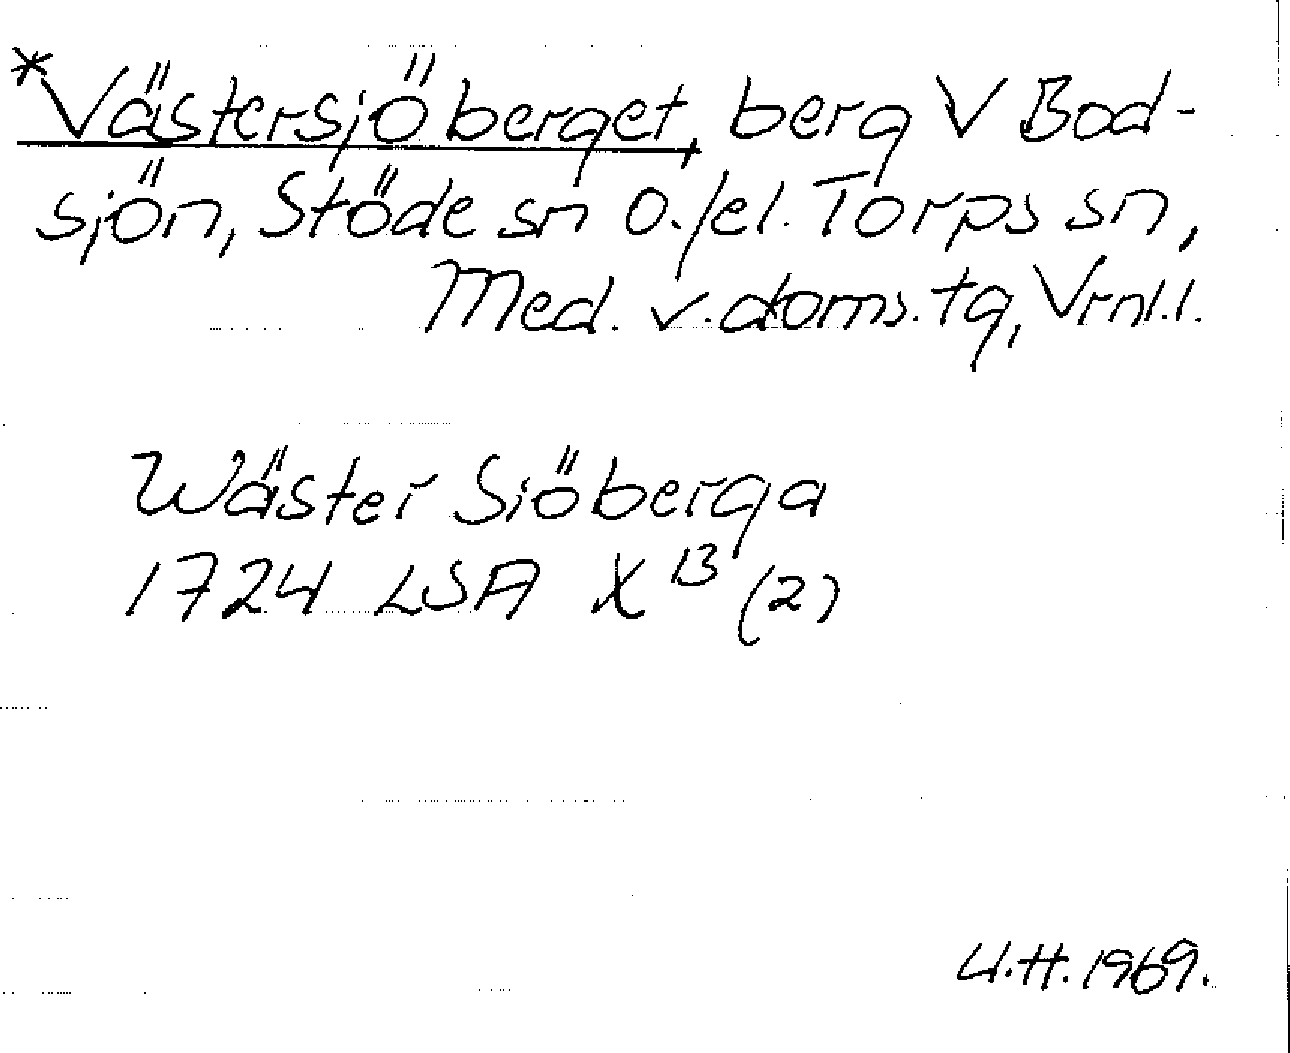 *Västersjöberget, berg V Bod-
sjön, Stöde sn o./el. Torps sn,
Med. v. doms. tg, Vrnl.l.
Wäster Siöberga
1724 LSA X 13 (2)
U.H. 1969.